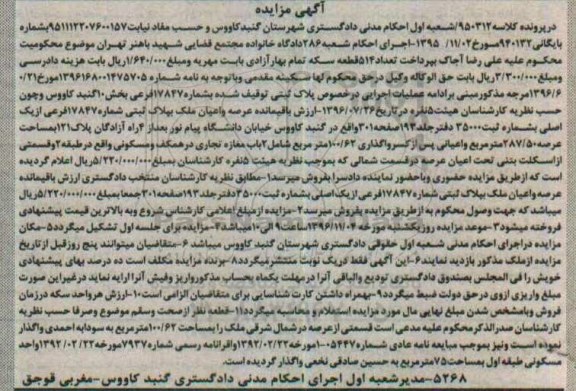 آگهی مزایده
در پرونده کلاسه ۹۵۰۳۱۲/شعبه اول احکام مدنی دادگستری شهرستان گنبدکاووس و حسب مفاد نیابت ۹۵۱۱۱۲۲۰۷۶۰۰۱۵۷بشماره
بایگانی ۹۴۰۱۳۲مورخ ۱۱/۰۲/ ۱۳۹۵-اجرای احکام شعبه ۲۸۶دادگاه خانواده مجتمع قضایی شهید باهنر تهران موضوع محکومیت
محکوم علیه علی رضا آچاک بپرداخت تعداد ۵۱۴قطعه سکه تمام بهار آزادی بابت مهریه و مبلغ ۱/۶۴۰/۰۰۰ریال بابت هزینه دادرسی
و ۳/۳۰۰/۰۰۰ ریال بابت حق الوکاله وکیل در حق محکوم لها سکینه مقدمی و باتوجه به نامه شماره ۱۳۹۶۱۶۸۰۰۱۴۷۵۷۰۵مورخ ۰۲/۱
۱۳۹۶/۶مرجه مذکور مبنی بر ادامه عملیات اجرایی در خصوص پلاک ثبتی توقیف شده بشماره ۱۷۸۴۷فرعی بخش ۱۰گنبد کاووس و چون
حسب نظریه کارشناسان هیئت ۵نفره در تاریخ ۱۳۹۶/۰۷/۲۶-ارزش باقیمانده عرصه واعیان ملک بپلاک ثبتی شماره ۱۷۸۴۷فرعی از یک
اصلی بشماره ثبت ۳۵۰۰۰دفتر جلد ۱۹۳صفحه ۳۰۱واقع در گنبد کاووس خیابان دانشگاه پیام نور بعداز ۴راه آزادگان پلاک ۱۲۱بمساحت
عرصه ۲۸۷/۵۰مترمربع واعیانی پس از کسر واگذاری ۱۰۰/۶۲متر مربع شامل ۲باب مغازه تجاری در همکف و مسکونی واقع در طبقه ۲وقسمتی
از اسکلت بتنی تحت اعیان عرصه در قسمت شمالی که بموجب نظریه هیئت ۵نفره کارشناسان بمبلغ ۵/۲۲۰/۰۰۰/۰۰۰ریال اعلام گردیده
است که از طریق مزایده حضوری و با حضور نماینده دادسرا بفروش میرسد ۱-مطابق نظریه کارشناسان منتخب دادگستری ارزش باقیمانده
عرصه واعیان ملک بپلاک ثبتی شماره ۱۷۸۴۷فرعی از یک اصلی بشماره ثبت ۳۵۰۰۰دفتر جلد ۱۹۳صفحه ۳۰۱جمعا بمبلغ ۵/۲۲۰/۰۰۰/۰۰۰ریال
میباشد که جهت وصول محکوم به از طریق مزایده بفروش میرسد ۲-مزایده از مبلغ اعلامی کارشناس شروع و به بالاترین قیمت پیشنهادی
فروخته میشود ۳-موعد مزایده روز یکشنبه مورخه ۱۳۹۶/۱۱/۰۴ ساعت ۹الی ۱۰میباشد ۴-مزایده برای جلسه اول تشکیل میگردد ۵-مکان
مزایده در اجرای احکام مدنی شعبه اول حقوقی دادگستری شهرستان گنبد کاووس میباشد ۶-متقاضیان میتوانند پنج روز قبل از تاریخ
مزایده از ملک مذکور بازدید نمایند ۶-این آگهی فقط در یک نوبت منتشر میگردد ۸-برنده مزایده مکلف است ده درصد بهای پیشنهادی
خویش را فی المجلس بصندوق دادگستری تودیع والباقی آنرا در مهلت یکماه بحساب مذکور واریز وفیش آنرا ارایه نماید در غیر این صورت
مبلغ واریزی ازوی در حق دولت ضبط میگردد ۹-بهمراه داشتن کارت شناسایی برای متقاضیان الزامی است ۱۰-ارزش هر واحد سکه در زمان
فروش و با مشخص شدن مبلغ نهایی مال مورد مزایده استعلام و محاسبه میگردد ۱۱-قطعه نظر از صحت وسقم موضوع و صرفا حسب نظریه
کارشناسان صدرالذکر محکوم علیه مدعی است قسمتی از عرصه در شمال شرقی ملک را بمساحت ۱۰۰/۶۲مترمربع به سودابه احمدی واگذار
نموده است ونیز بموجب مبایعه نامه عادی شماره ۰۵۴۴۷-۱مورخه ۱۳۹۲/۰۲/۲۲واقرارنامه رسمی شماره ۷۹۳۷مورخه ۱۳۹۲/۰۲/۲۲واحد
مسکونی طبقه اول بمساحت ۷۵مترمربع به حسین صادقی نخعی واگذار گردیده است.
۵۲۶۸-مدیر شعبه اول اجرای احکام مدنی دادگستری گنبد کاووس-مغربی قوجق